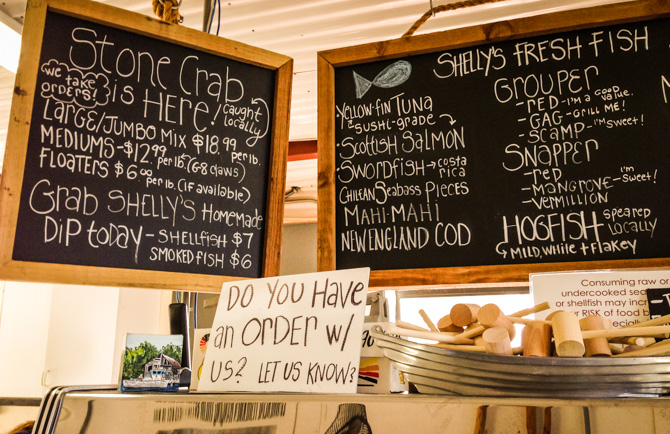 Stone Crab
we take orders!
is Here!
(caught locally)
Large/Jumbo Mix $18.99 per lb.
Mediums-$12.99 per lb. (6-8 claws)
Floaters $6.00 per lb. (if available)
Grab Shelly's Homemade
Dip today - Shellfish $7
Smoked Fish $6
Shelly's Fresh Fish
Yellow-fin Tuna
Sushi-grade
Scottish Salmon
Swordfish → Costa Rica
Chilean Seabass Pieces
Mahi-Mahi
New England Cod
Grouper
- Red - I'm a good value.
- Gag - Grill me!
- Scamp - I'm sweet!
Snapper
- Red
- Mangrove - I'm sweet!
- Vermillion
Hogfish speared locally
Mild, white + flakey
Do you have
an order w/
us? Let us know?
Consuming raw or
undercooked
or shellfish may
or RISK of food